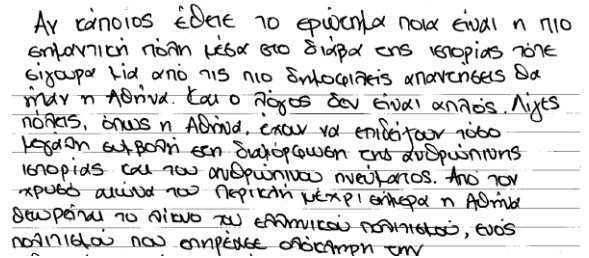 Αν κάποιος έθετε το ερώτημα ποια είναι η πιο
σημαντική πόλη μέσα στο διάβα της ιστορίας τότε
σίγουρα μία από τις πιο δημοφιλείς απαντήσεις θα
ήταν η Αθήνα. Και ο λόγος δεν είναι απλός. Λίγες
πόλεις, όπως η Αθήνα, έχουν να επιδείξουν τόσο
μεγάλη συμβολή στη διαμόρφωση της ανθρώπινης
ιστορίας και του ανθρώπινου πνεύματος. Από τον
χρυσό αιώνα του Περικλή μέχρι σήμερα η Αθήνα
θεωρείται το λίκνο του ελληνικού πολιτισμού, ενός
πολιτισμού που επηρέασε ολόκληρη την